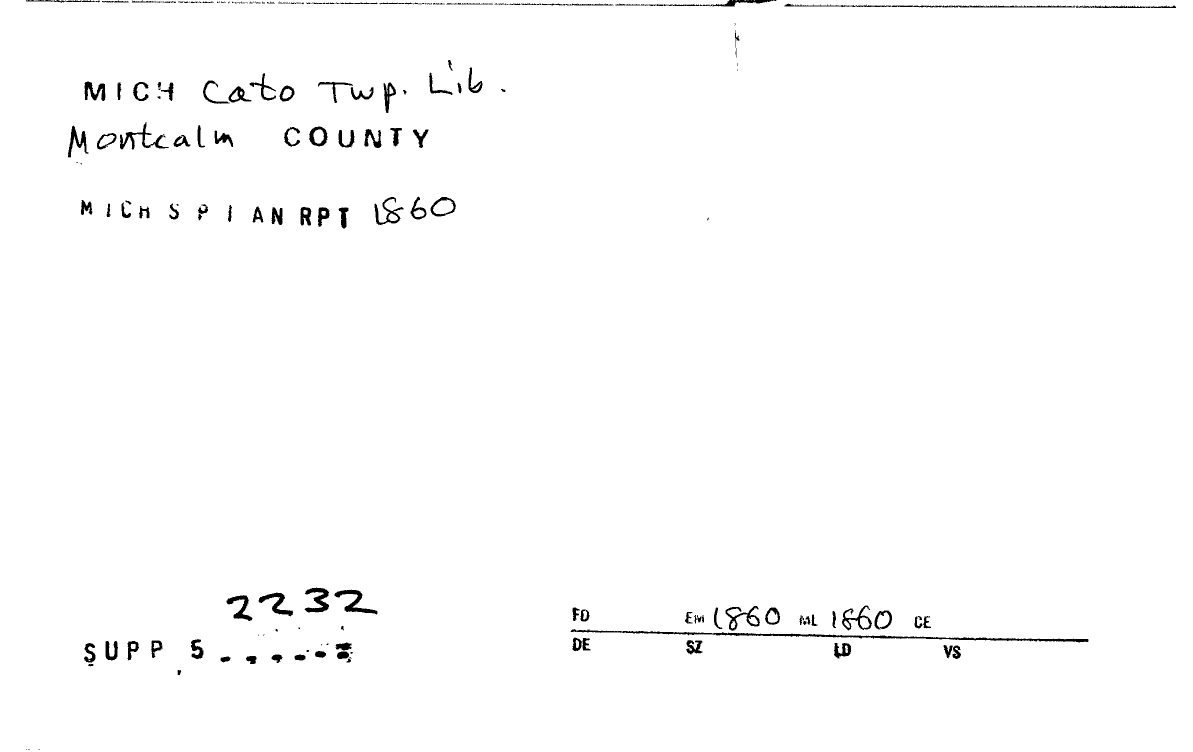 MICH Cato Twp. Lib.
Montcalm COUNTY
MICH S P I AN RPT 1860
2232
SUPP 5......
FD EM 1860 ML 1860 CE
DE SZ LD VS